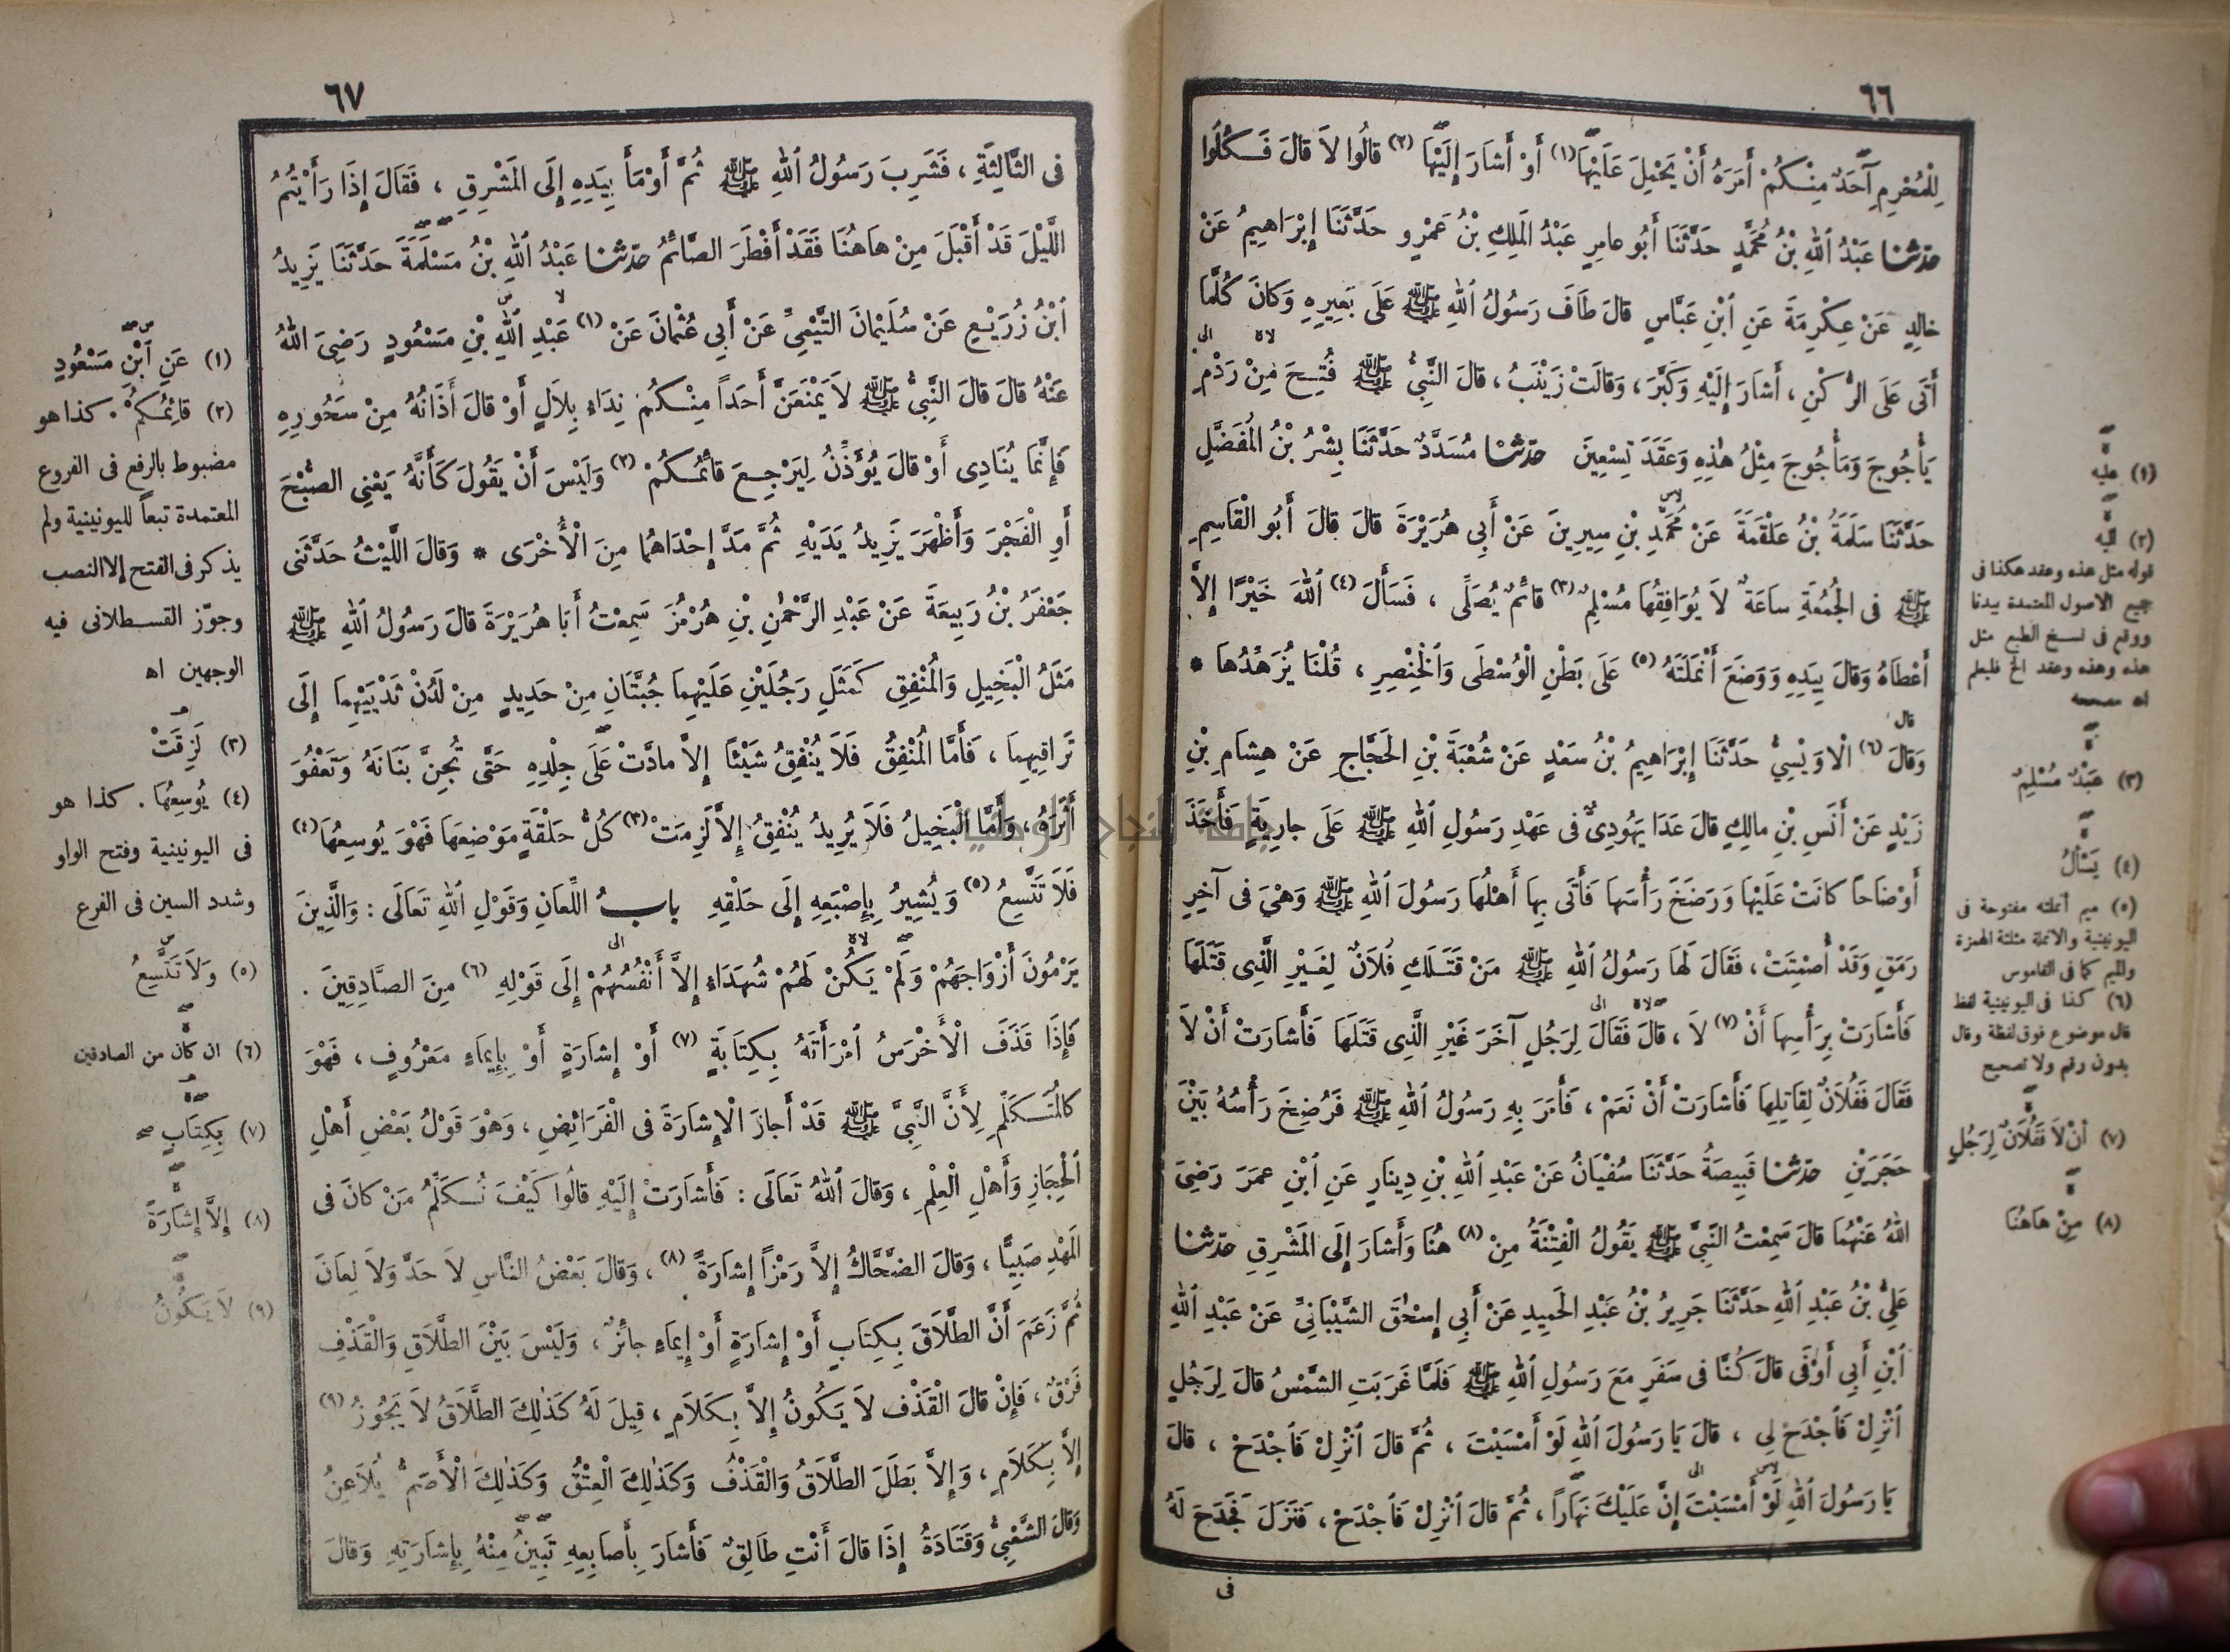 ٦٦
لِلْمُحْرِمِ آحَدٌ مِنْكُمْ أَمَرَهُ أَنْ يَحْمِلَ عَلَيْهَا (١) أَوْ أَشَارَ إِلَيْهَا (٢) قَالُوا لاَ قَالَ فَكُلُوا
حَدَّثَنَا عَبْدُ اللهِ بْنُ مُحَمَّدٍ حَدَّثَنَا أَبُو عَامِرٍ عَبْدُ المَلِكِ بْنُ عَمْرٍو حَدَّثَنَا إِبْرَاهِيمُ عَنْ
خَالِدٍ عَنْ عِكْرِمَةَ عَنِ ابْنِ عَبَّاسٍ قَالَ طَافَ رَسُولُ اللهِ ﷺ عَلَى بَعِيرِهِ وَكَانَ كُلَّمَا
أَتَى عَلَى الرُّكْنِ ، أَشَارَ إِلَيْهِ وَكَبَّرَ ، وَقَالَتْ زَيْنَبُ ، قَالَ النَّبِيُّ ﷺ فُتِحَ مِنْ رَدْمِ
يَأْجُوجَ وَمَأْجُوجَ مِثْلُ هٰذِهِ وَعَقَدَ تِسْعِينَ حَدَّثَنَا مُسَدَّدٌ حَدَّثَنَا بِشْرُ بْنُ المُفَضَّلِ
حَدَّثَنَا سَلَمَةُ بْنُ عَلْقَمَةَ عَنْ مُحَمَّدِ بْنِ سِيرِينَ عَنْ أَبِي هُرَيْرَةَ قَالَ قَالَ أَبُو الْقَاسِمِ
ﷺ فِى الجُمُعَةِ سَاعَةٌ لاَ يُوَافِقُهَا مُسْلِمٌ (٣) قَائِمٌ يُصَلِّى ، فَسَأَلَ (٤) اللهَ خَيْرًا إِلاَّ
أَعْطَاهُ وَقَالَ بِيَدِهِ وَوَضَعَ أَنْمَلَتَهُ (٥) عَلَى بَطْنِ الْوُسْطَى وَالْخِنْصِرِ ، قُلْنَا يُزَهِّدُهَا *
وَقَالَ (٦) الْاوَيْسِيُّ حَدَّثَنَا إِبْرَاهِيمُ بْنُ سَعْدٍ عَنْ شُعْبَةَ بْنِ الحَجَّاجِ عَنْ هِشَامِ بْنِ
زَيْدٍ عَنْ أَنَسِ بْنِ مالِكٍ قَالَ عَدَا يَهُودِيٌّ فى عَهْدِ رَسُولِ اللهِ ﷺ عَلَى جارِيَةٍ فَأَخَذَ
أَوْضَاحًا كَانَتْ عَلَيْهَا وَرَضَخَ رَأْسَهَا فَأَتَى بِهَا أَهْلُهَا رَسُولَ اللهِ ﷺ وَهْيَ فى آخِرِ
رَمَقٍ وَقَدْ أُصْمِتَتْ ، فَقَالَ لَهَا رَسُولُ اللهِ ﷺ مَنْ قَتَلَكِ فُلاَنٌ لِغَيْرِ الَّذِى قَتَلَهَا
فَأَشَارَتْ بِرَأْسِهَا أَنْ (٧) لاَ ، قَالَ فَقَالَ لِرَجُلٍ آخَرَ غَيْرِ الَّذِى قَتَلَهَا فَأَشَارَتْ أَنْ لاَ
فَقَالَ فَفُلاَنٌ لِقَاتِلِهَا فَأَشَارَتْ أَنْ نَعَمْ ، فَأَمَرَ بِهِ رَسُولُ اللهِ ﷺ فَرُضِخَ رَأْسُهُ بَيْنَ
حَجَرَيْنِ حَدَّثَنَا قَبِيصَةُ حَدَّثَنَا سُفْيَانُ عَنْ عَبْدِ اللهِ بْنِ دِينَارٍ عَنِ ابْنِ عمَرَ رَضِىَ
اللهُ عَنْهُمَا قَالَ سَمِعْتُ النَّبِيَّ ﷺ يَقُولُ الْفِتْنَةُ مِنْ (٨) هُنَا وَأَشَارَ إِلَى المَشْرِقِ حَدَّثَنَا
عَلِيُّ بْنُ عَبْدِ اللهِ حَدَّثَنَا جَرِيرُ بْنُ عَبْدِ الحَمِيدِ عَنْ أَبِي إِسْحٰقَ الشَّيْبَانِيِّ عَنْ عَبْدِ اللهِ
ابْنِ أَبِي أَوْفَى قَالَ كُنَّا فى سَفَرٍ مَعَ رَسُولِ اللهِ ﷺ فَلَمَّا غَرَبَتِ الشَّمْسُ قَالَ لِرَجُلٍ
انْزِلْ فَاجْدَحْ لِى ، قَالَ يَا رَسُولَ اللهِ لَوْ أَمْسَيْتَ ، ثُمَّ قَالَ انْزِلْ فَاجْدَحْ ، قَالَ
يَا رَسُولَ اللهِ لَوْ أَمْسَيْتَ إِنَّ عَلَيْكَ نَهَاراً ، ثُمَّ قَالَ انْزِلْ فَاجْدَحْ ، فَنَزَلَ فَجَدَحَ لَهُ
فى
(١) عليه
(٢) اليه
قوله مثل هذه وعقد هكذا فى
جميع الاصول المعتمدة بيدنا
ووقع فى نسخ الطبع مثل
هذه وهذه وعقد الخ فليعلم
اه مصححه
(٣) عَبْدٌ مُسْلِمٌ
(٤) يَسْأَلُ
(٥) ميم أنملته مفتوحة فى
اليونينية والانملة مثلثة الهمزة
والميم كما فى القاموس
(٦) كذا فى اليونينية لفظ
قال موضوع فوق لفظة وقال
بدون رقم ولا تصحيح
(٧) أَنْ لاَ فَفُلاَنٌ لِرَجُلٍ
(٨) مِنْ هَاهُنَا
٦٧
فى الثَّالِثَةِ ، فَشَرِبَ رَسُولُ اللهِ ﷺ ثُمَّ أَوْمَأَ بِيَدِهِ إِلَى المَشْرِقِ ، فَقَالَ إِذَا رَأَيْتُمُ
اللَّيْلَ قَدْ أَقْبَلَ مِنْ هَاهُنَا فَقَدْ أَفْطَرَ الصَّائِمُ حَدَّثَنَا عَبْدُ اللهِ بْنُ مَسْلَمَةَ حَدَّثَنَا يَزِيدُ
ابْنُ زُرَيْعٍ عَنْ سُلَيْمَانَ التَّيْمِيِّ عَنْ أَبِي عُثْمَانَ عَنْ (١) عَبْدِ اللهِ بْنِ مَسْعُودٍ رَضِىَ اللهُ
عَنْهُ قَالَ قَالَ النَّبِيُّ ﷺ لاَ يَمْنَعَنَّ أَحَداً مِنْكُمْ نِدَاءُ بِلاَلٍ أَوْ قَالَ أَذَانُهُ مِنْ سَحُورِهِ
فَإِنَّمَا يُنَادِى أَوْ قَالَ يُؤَذِّنُ لِيَرْجِعَ قَائِمُكُمْ (٢) وَلَيْسَ أَنْ يَقُولَ كَأَنَّهُ يَعْنِى الصُّبْحَ
أَوِ الْفَجْرَ وَأَظْهَرَ يَزِيدُ يَدَيْهِ ثُمَّ مَدَّ إِحْدَاهُمَا مِنَ الْأُخْرَى * وَقَالَ اللَّيْثُ حَدَّثَنى
جَعْفَرُ بْنُ رَبِيعَةَ عَنْ عَبْدِ الرَّحْمٰنِ بْنِ هُرْمُزَ سَمِعْتُ أَبَا هُرَيْرَةَ قَالَ رَسُولُ اللهِ ﷺ
مَثَلُ الْبَخِيلِ وَالمُنْفِقِ كَمَثَلِ رَجُلَيْنِ عَلَيْهِمَا جُبَّتَانِ مِنْ حَدِيدٍ مِنْ لَدُنْ ثَدْيَيْهِمَا إِلَى
تَرَاقِيهِمَا ، فَأَمَّا المُنْفِقُ فَلاَ يُنْفِقُ شَيْئًا إِلاَّ مادَّتْ عَلَى جِلْدِهِ حَتَّى تُجِنَّ بَنَانَهُ وَتَعْفُوَ
أَثَرَهُ ، وَأَمَّا الْبَخِيلُ فَلاَ يُرِيدُ يُنْفِقُ إِلاَّ لَزِمَتْ (٣) كُلُّ حَلْقَةٍ مَوْضِعَهَا فَهْوَ يُوسِعُهَا (٤)
فَلاَ تَتَّسِعُ (٥) وَيُشِيرُ بِإِصْبَعِهِ إِلَى حَلْقِهِ بابُ اللِّعَانِ وَقَوْلِ اللهِ تَعَالَى : وَالَّذِينَ
يَرْمُونَ أَزْوَاجَهُمْ وَلَمْ يَكُنْ لَهُمْ شُهَدَاءُ إِلاَّ أَنْفُسُهُمْ إِلَى قَوْلِهِ (٦) مِنَ الصَّادِقِينَ .
فَإِذَا قَذَفَ الْأَخْرَسُ امْرَأَتَهُ بِكِتَابَةٍ (٧) أَوْ إِشَارَةٍ أَوْ بِإِيمَاءٍ مَعْرُوفٍ ، فَهْوَ
كَالمُتَكَلِّمِ لِأَنَّ النَّبِيَّ ﷺ قَدْ أَجَازَ الْإِشَارَةَ فى الْفَرَائِضِ ، وَهْوَ قَوْلُ بَعْضِ أَهْلِ
الْحِجَازِ وَأَهْلِ الْعِلْمِ ، وَقَالَ اللهُ تَعَالَى : فَأَشَارَتْ إِلَيْهِ قَالُوا كَيْفَ نُكَلِّمُ مَنْ كَانَ فى
المَهْدِ صَبِيًّا ، وَقَالَ الضَّحَّاكُ إِلاَّ رَمْزاً إِشَارَةً (٨) ، وَقَالَ بَعْضُ النَّاسِ لاَ حَدَّ وَلاَ لِعَانَ
ثُمَّ زَعَمَ أَنَّ الطَّلاَقَ بِكِتَابٍ أَوْ إِشَارَةٍ أَوْ إِيمَاءٍ جائِزٌ ، وَلَيْسَ بَيْنَ الطَّلاَقِ وَالْقَذْفِ
فَرْقٌ ، فَإِنْ قَالَ الْقَذْفُ لاَ يَكُونُ إِلاَّ بِكَلاَمٍ ، قِيلَ لَهُ كَذٰلِكَ الطَّلاَقُ لاَ يَجُوزُ (٩)
إِلاَّ بِكَلاَمٍ ، وَإِلاَّ بَطَلَ الطَّلاَقُ وَالْقَذْفُ وَكَذٰلِكَ الْعِتْقُ وَكَذٰلِكَ الْأَصَمُّ يُلاَعِنُ
وَقَالَ الشَّعْبِيُّ وَقَتَادَةُ إِذَا قَالَ أَنْتِ طَالِقٌ فَأَشَارَ بِأَصَابِعِهِ تَبِينُ مِنْهُ بِإِشَارَتِهِ وَقَالَ
(١) عَنِ ابْنِ مَسْعُودٍ
(٢) قَائِمُكُمْ . كذا هو
مضبوط بالرفع فى الفروع
المعتمدة تبعاً لليونينية ولم
يذكر فى الفتح إلا النصب
وجوّز القسطلانى فيه
الوجهين اه
(٣) لَزِقَتْ
(٤) يُوسِعُهَا . كذا هو
فى اليونينية وفتح الواو
وشدد السين فى الفرع
(٥) وَلاَ تَتَّسِعُ
(٦) ان كان من الصادقين
(٧) بِكِتَابٍ
(٨) إِلاَّ إِشَارَةً
(٩) لاَ يَكُونُ
جامعة النجاح الوطنية